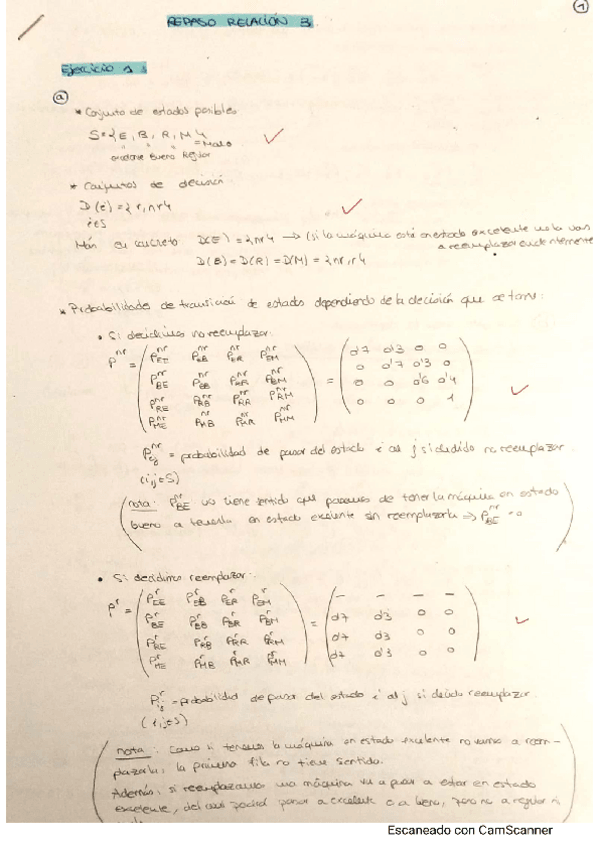 1
REPASO RELACIÓN 3
Ejercicio 1
a
* Conjunto de estados posibles
S = {E, B, R, M}
= Malo
excelente Bueno Regular
* Conjuntos de decisión
D(i) = {r, nr}
i∈S
Más en concreto D(E) = {nr} → (si la máquina está en estado excelente no la van
a reemplazar evidentemente
D(B) = D(R) = D(M) = {nr, r}
* Probabilidades de transición de estados dependiendo de la decisión que se tome:
• Si decidimos no reemplazar:
P^nr = ( P^nr_EE P^nr_EB P^nr_ER P^nr_EM ) = ( 0'7 0'3 0 0 )
P^nr_BE P^nr_BB P^nr_BR P^nr_BM 0 0'7 0'3 0
P^nr_RE P^nr_RB P^nr_RR P^nr_RM 0 0 0'6 0'4
P^nr_ME P^nr_MB P^nr_MR P^nr_MM 0 0 0 1
P^nr_ij = probabilidad de pasar del estado i al j si decido no reemplazar.
(i,j∈S)
(nota: P^nr_BE no tiene sentido que pasemos de tener la máquina en estado
bueno a tenerla en estado excelente sin reemplazarla ⇒ P^nr_BE = 0)
• Si decidimos reemplazar:
P^r = ( P^r_EE P^r_EB P^r_ER P^r_EM ) = ( - - - - )
P^r_BE P^r_BB P^r_BR P^r_BM 0'7 0'3 0 0
P^r_RE P^r_RB P^r_RR P^r_RM 0'7 0'3 0 0
P^r_ME P^r_MB P^r_MR P^r_MM 0'7 0'3 0 0
P^r_ij = probabilidad de pasar del estado i al j si decido reemplazar.
(i,j∈S)
(nota: Como si tenemos la máquina en estado excelente no vamos a reem-
plazarla, la primera fila no tiene sentido.
Además, si reemplazamos una máquina va a pasar a estar en estado
excelente, del cual podrá pasar a excelente o a bueno, pero no a regular ni
Escaneado con CamScanner